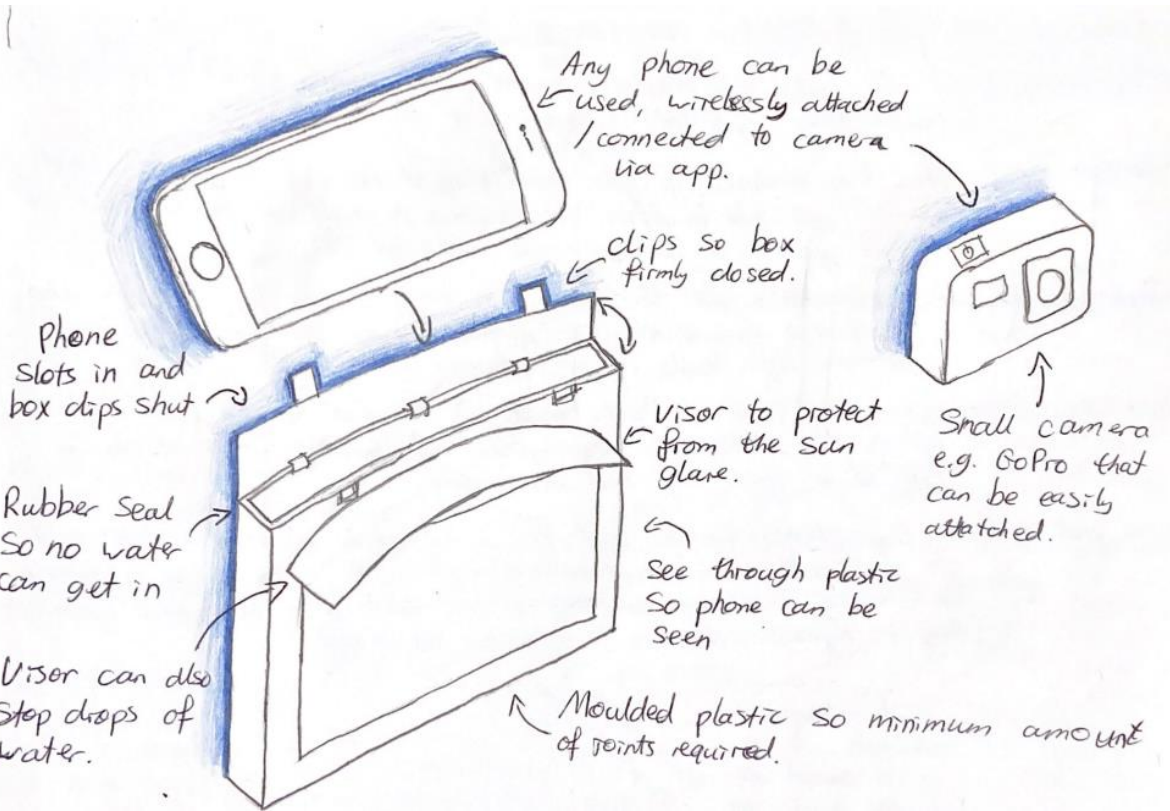 Any phone can be
used, wirelessly attached
/connected to camera
via app.
clips so box
firmly closed.
Phone
slots in and
box clips shut
Visor to protect
from the sun
glare.
Small camera
e.g. GoPro that
can be easily
attatched.
Rubber Seal
So no water
can get in
See through plastic
So phone can be
seen
Visor can also
stop drops of
water.
Moulded plastic so minimum amount
of joints required.